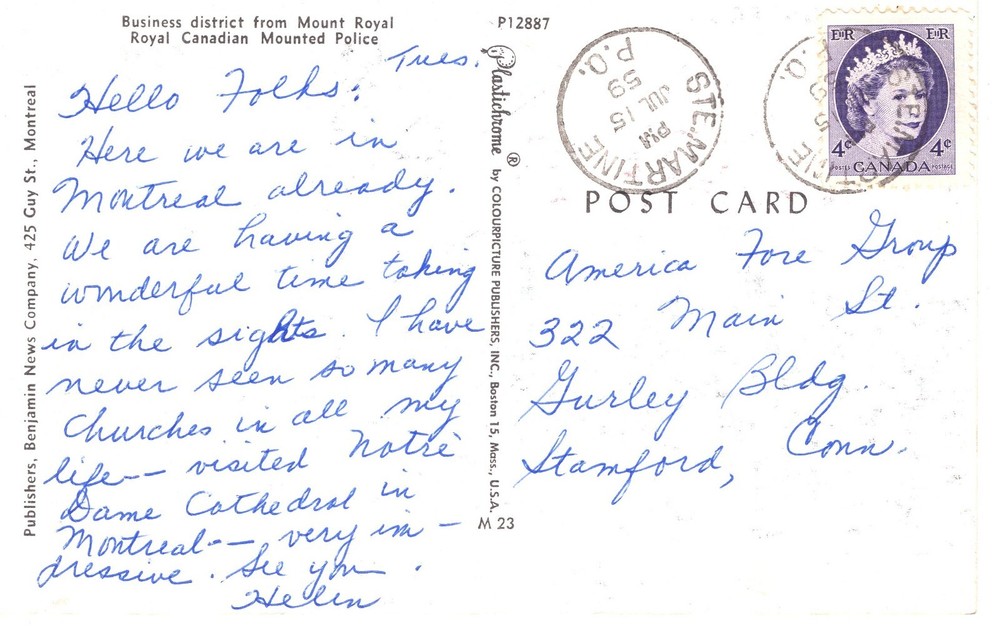 Business district from Mount Royal
Royal Canadian Mounted Police
Tues.
Hello Folks:
Here we are in
Montreal already.
We are having a
wonderful time taking
in the sights. I have
never seen so many
Churches in all my
life-- visited Notre
Dame Cathedral in
Montreal-- very im-
pressive. See you.
Helen
Publishers, Benjamin News Company, 425 Guy St., Montreal
P12887
Plastichrome ® by COLOURPICTURE PUBLISHERS, INC., Boston 15, Mass., U.S.A.
M 23
STE.MARTINE
PM
JUL 15
59
P.Q.
EIIR EIIR
4¢ 4¢
POSTES CANADA POSTAGE
POST CARD
America Fore Group
322 Main St.
Gurley Bldg.
Stamford, Conn.